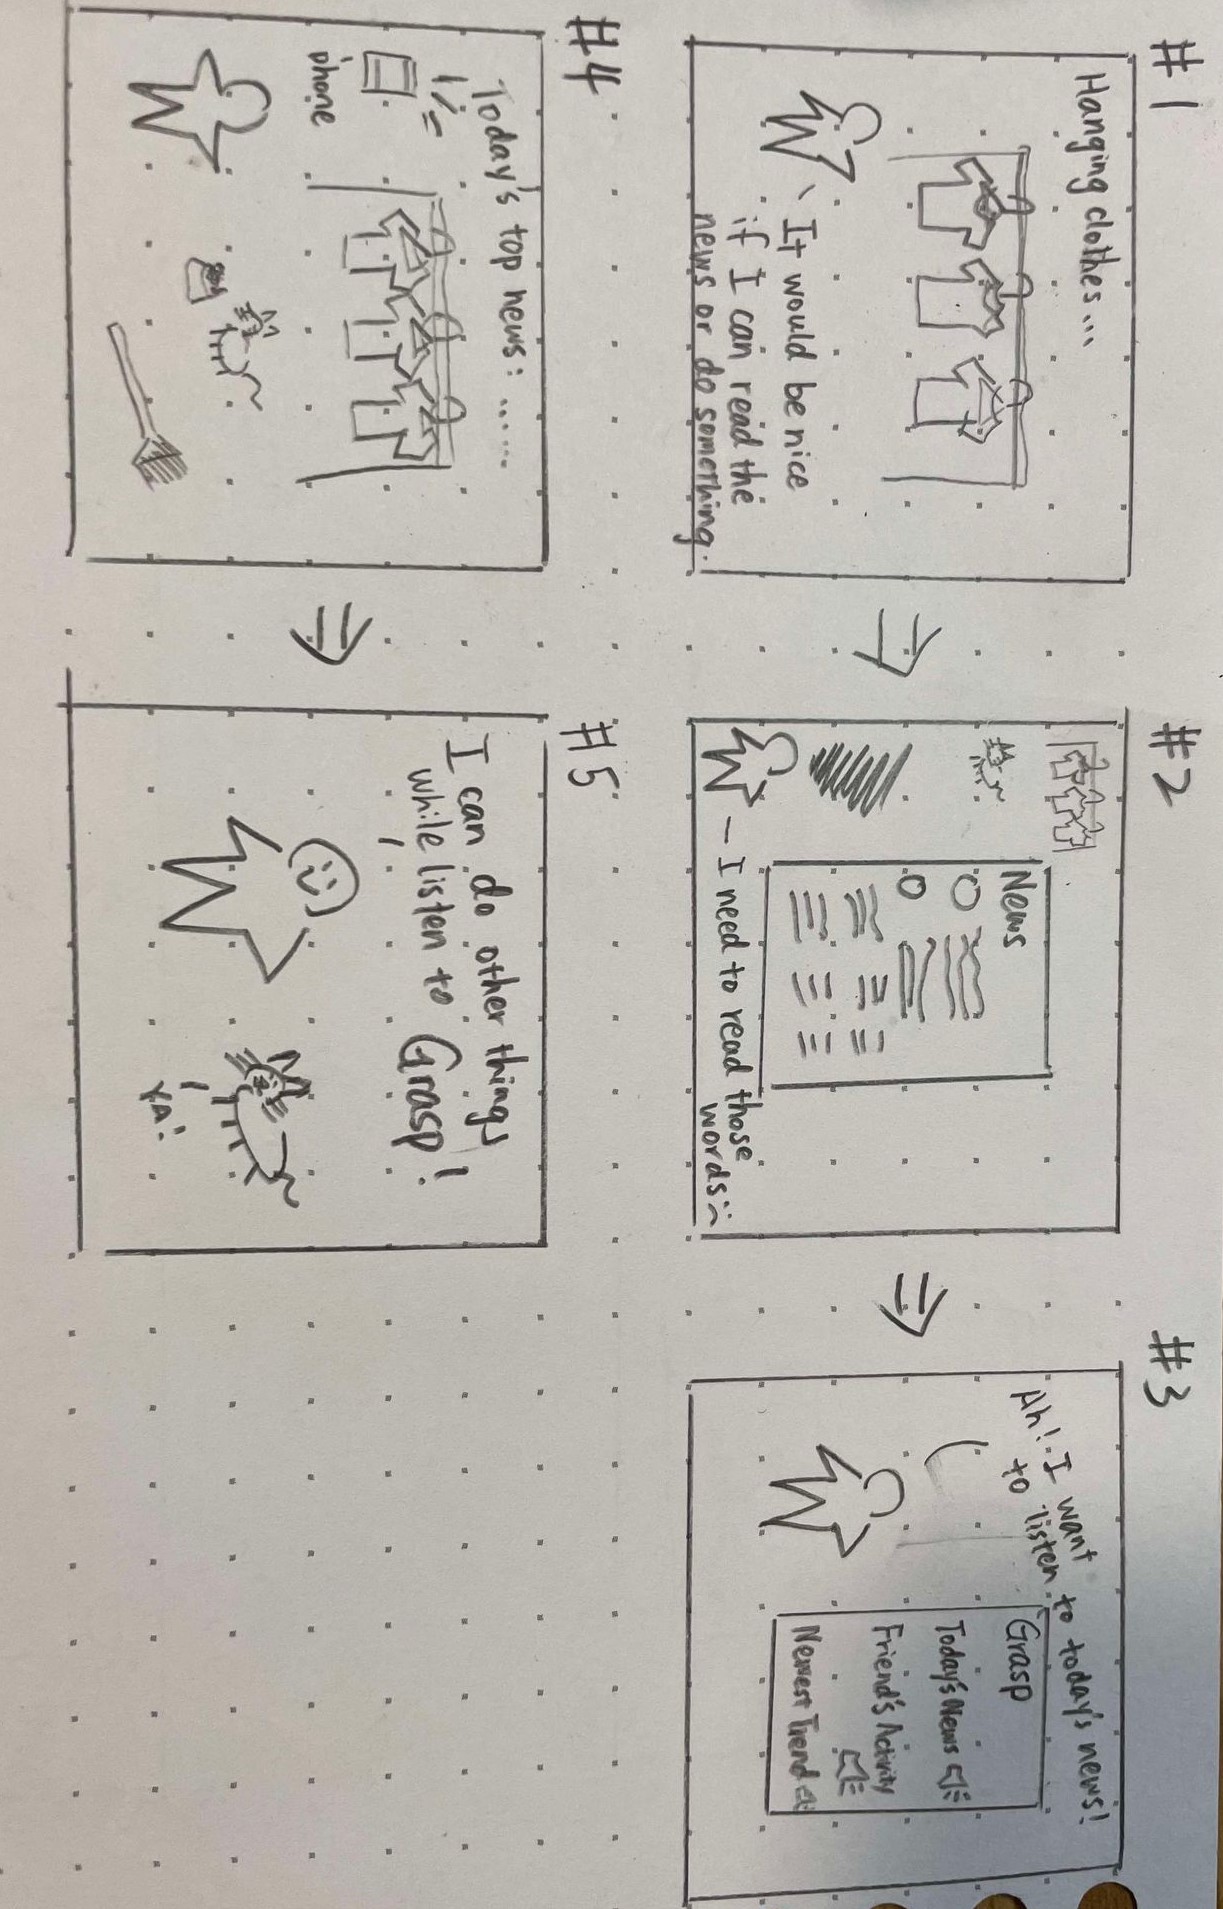 #1
Hanging clothes...
It would be nice
if I can read the
news or do something.
#2
News
I need to read those
words :(
#3
Ah! I want
to listen to today's news!
Grasp
Today's News
Friend's Activity
Newest Trend
#4
Today's top news: ......
phone
#5
I can do other things
while listen to Grasp!
YA!